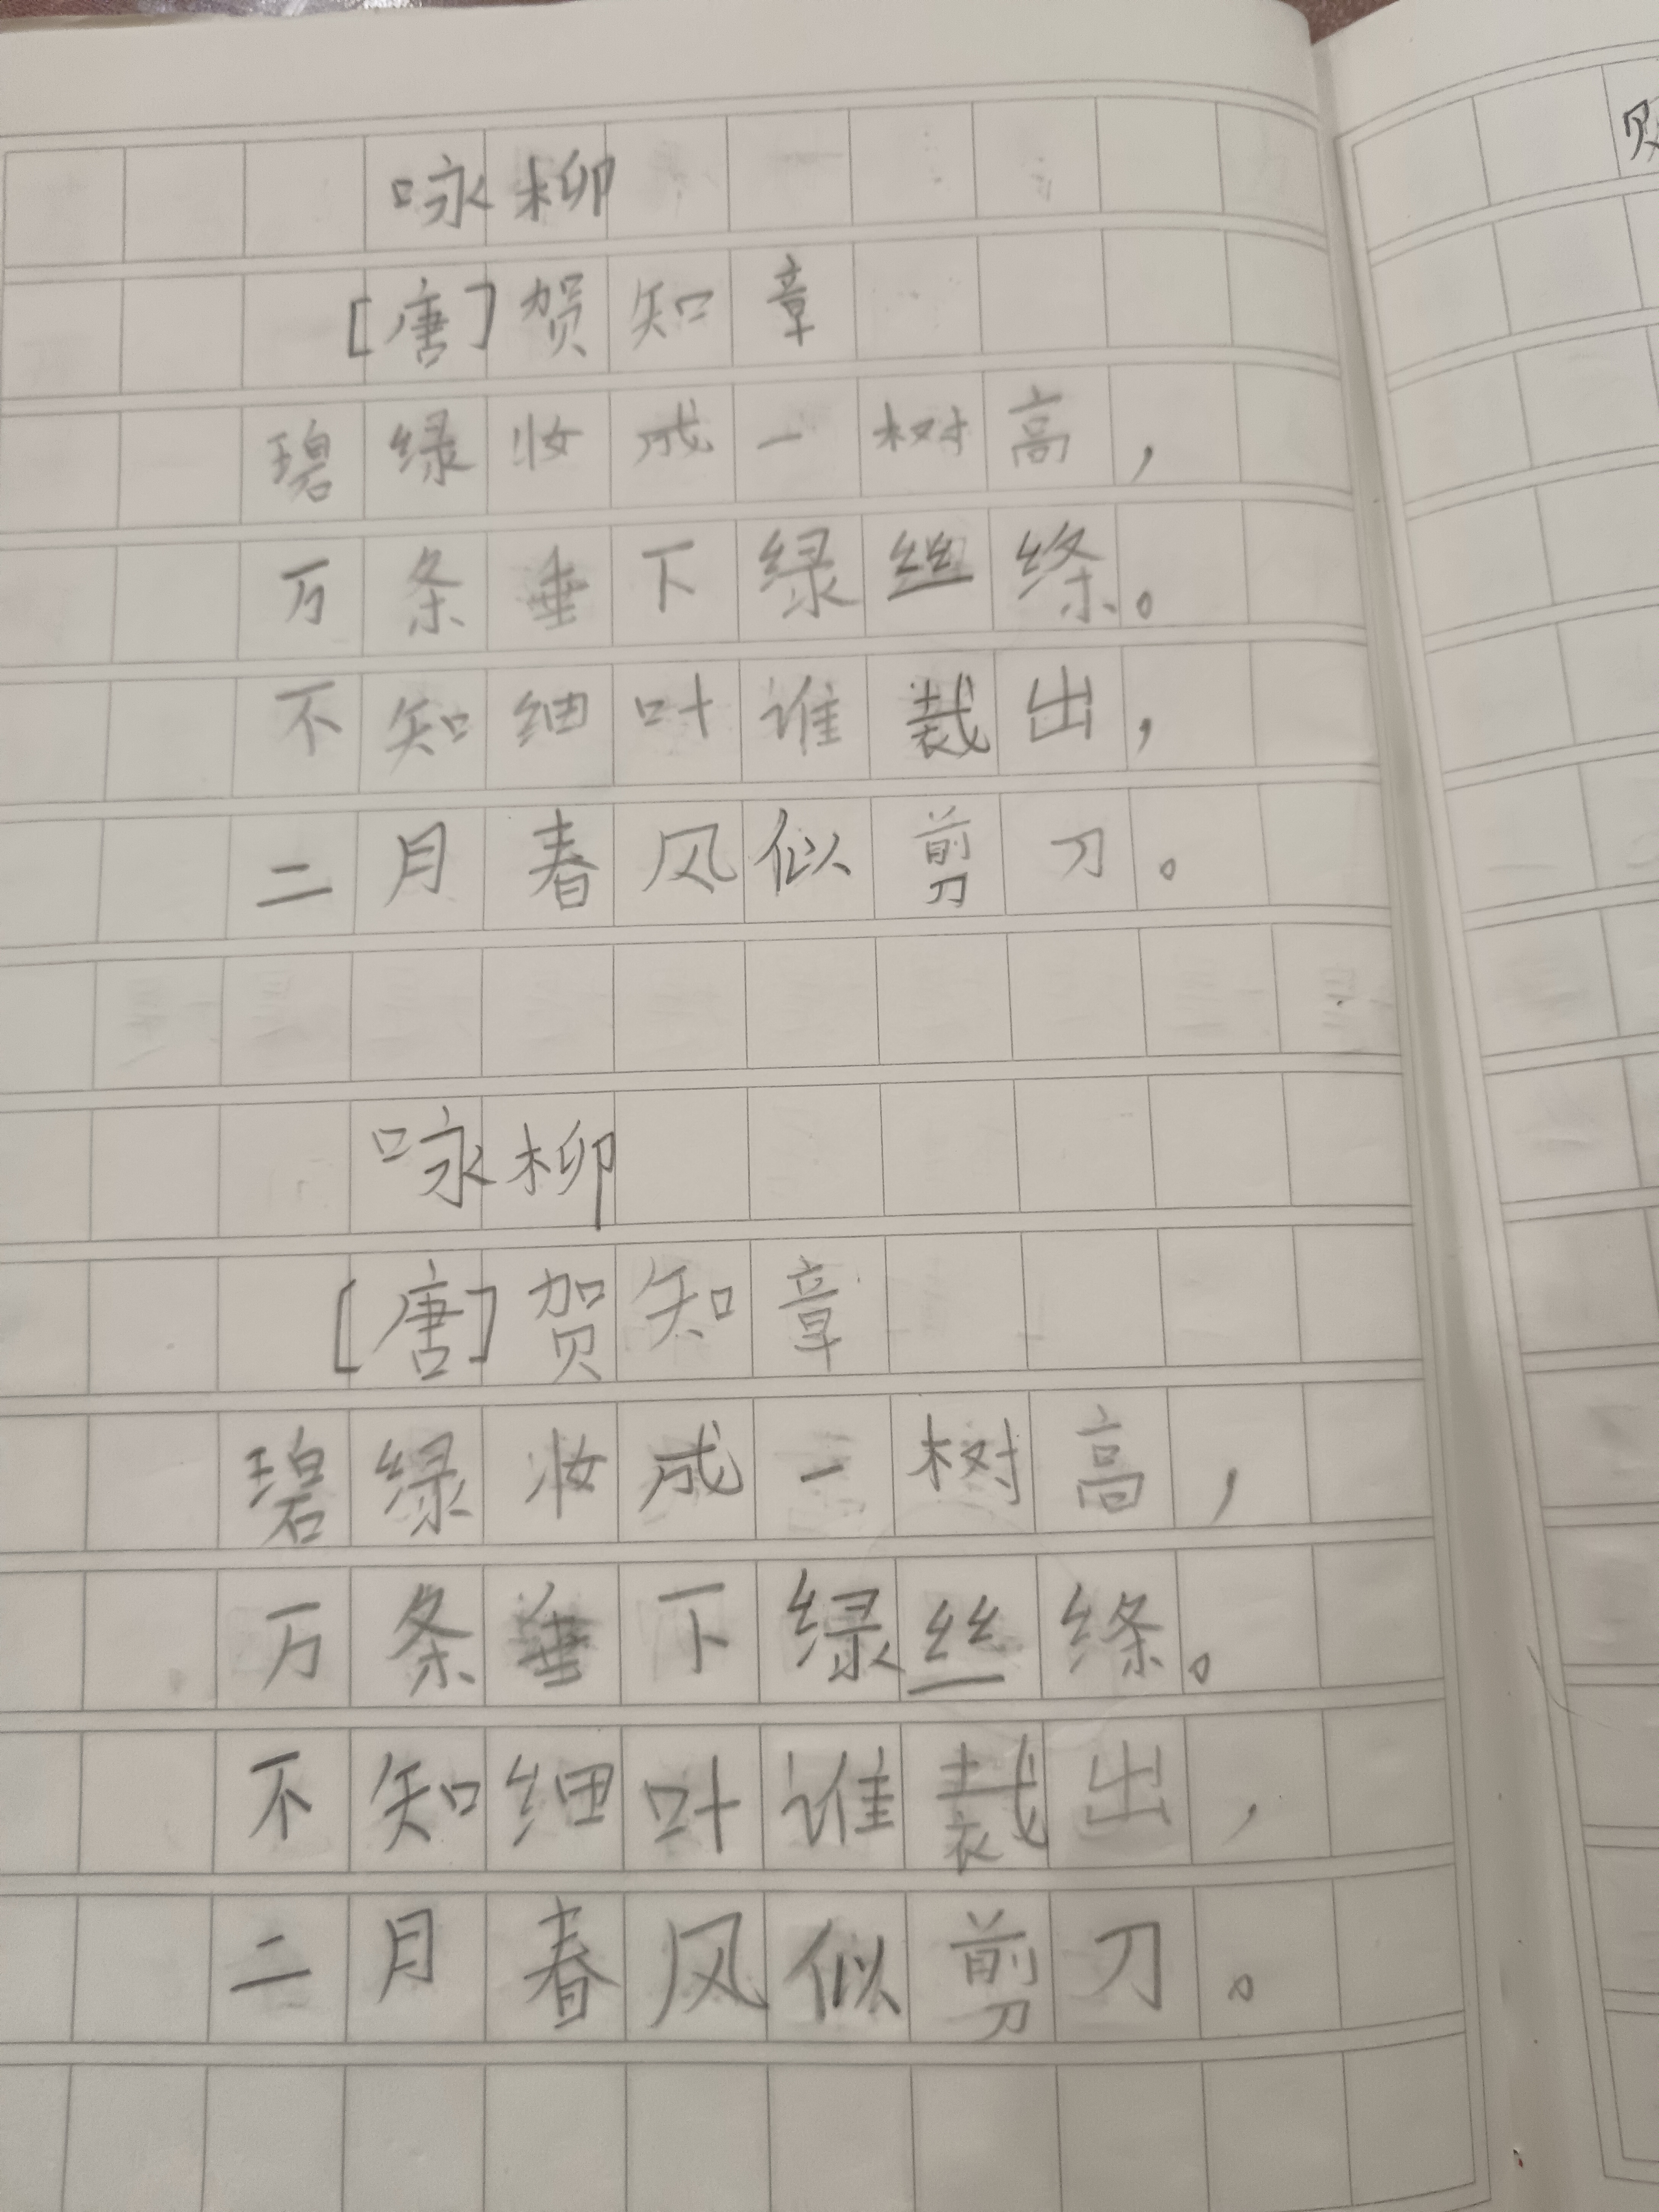 咏柳
[唐]贺知章
碧绿妆成一树高，
万条垂下绿丝绦。
不知细叶谁裁出，
二月春风似剪刀。
咏柳
[唐]贺知章
碧绿妆成一树高，
万条垂下绿丝绦。
不知细叶谁裁出，
二月春风似剪刀。